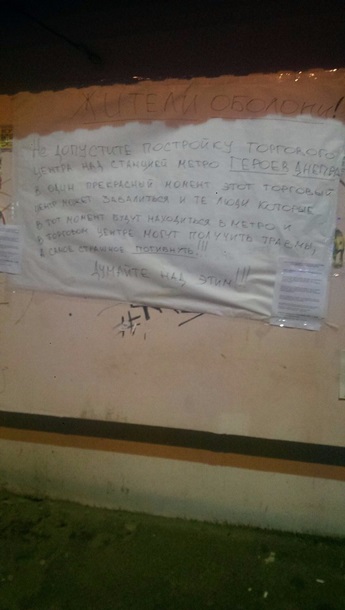 ЖИТЕЛИ ОБОЛОНИ!
НЕ ДОПУСТИТЕ ПОСТРОЙКУ ТОРГОВОГО
ЦЕНТРА НАД СТАНЦИЕЙ МЕТРО ГЕРОЕВ ДНЕПРА
В ОДИН ПРЕКРАСНЫЙ МОМЕНТ ЭТОТ ТОРГОВЫЙ
ЦЕНТР МОЖЕТ ЗАВАЛИТЬСЯ И ТЕ ЛЮДИ КОТОРЫЕ
В ТОТ МОМЕНТ БУДУТ НАХОДИТЬСЯ В МЕТРО И
В ТОРГОВОМ ЦЕНТРЕ МОГУТ ПОЛУЧИТЬ ТРАВМЫ,
А САМОЕ СТРАШНОЕ ПОГИБНУТЬ!!!
ДУМАЙТЕ НАД ЭТИМ!!!